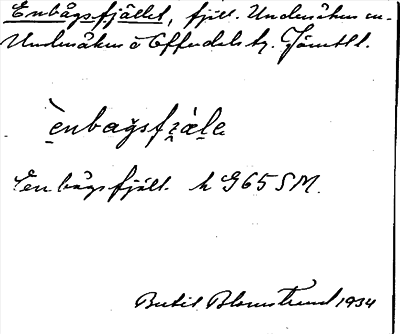 Enbågsfjället, fjäll. Undersåkers sn.
Undersåkers o Offerdals tg. Jämtl.
ènbagsfʒäl̀e
Enbågsfjäll. h G65SM.
Bertil Blomstrand 1934